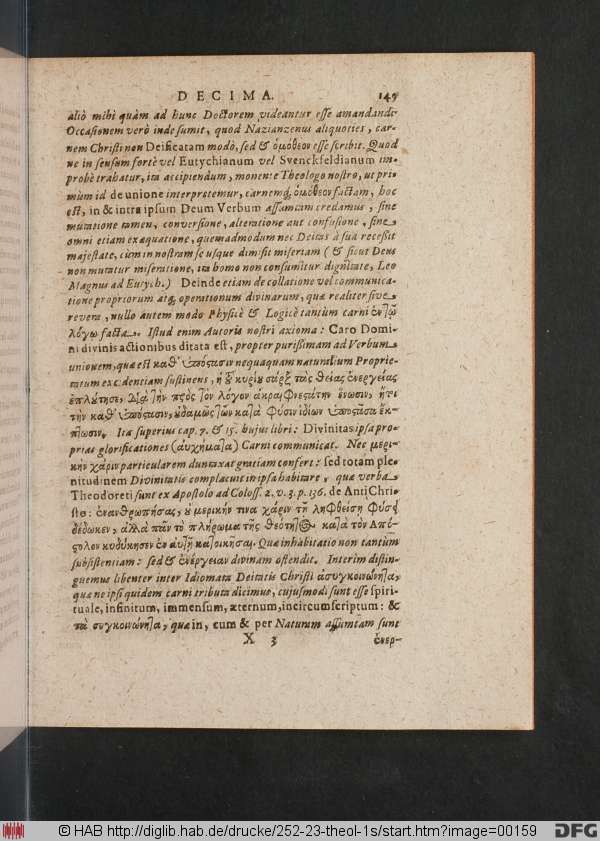 DECIMA. 147
aliò mihi quàm ad hunc Doctorem videantur esse amandandi.
Occasionem verò inde sumit, quod Nazianzenus aliquoties, car-
nem Christi non Deificatam modò, sed & ὁμόθεον esse scribit. Quod
ne in sensum fortè vel Eutychianum vel Svenckfeldianum im-
probè trahatur, ita accipiendum, monente Theologo nostro, ut pri-
mùm id de unione interpretemur, carnemq́; ὁμόθεον factam, hoc
est, in & intra ipsum Deum Verbum assumtam credamus, sine
mutatione tamen, conversione, alteratione aut confusione, sine
omni etiam exæquatione, quemadmodum nec Deitas à sua recessit
majestate, cùm in nostram se usque dimisit miseriam ( & sicut Deus
non mutatur miseratione, ita homo non consumitur dignitate, Leo
Magnus ad Eutych.) Deinde etiam de collatione vel communica-
tione propriorum atq; operationum divinarum, quæ realiter sive
revera, nullo autem modo Physicè & Logicè tantùm carni
λόγῳ facta. Istud enim Autoris nostri axioma: Caro Domi-
ni divinis actionibus ditata est, propter purissimam ad Verbum
unionem, quæ est καθ' ὑπόστασιν nequaquam naturalium Proprie-
tatum excidentiam sustinens, ἡ τοῦ κυρίου σὰρξ τὰς θείας ἐνεργείας
ἐπλούτησε, διὰ τὴν πρὸς τὸν λόγον ἀκραιφνεστάτην ἕνωσιν, ἤτοι
τὴν καθ' ὑπόστασιν, οὐδαμῶς τῶν κατὰ φύσιν ἰδίων ὑποστᾶσα ἔκ-
πτωσιν. Ita superius cap. 7. & 15. hujus libri: Divinitas ipsa pro-
prias glorificationes (αὐχήματα) Carni communicat. Nec μερι-
κὴν χάριν particularem duntaxat gratiam confert: sed totam ple-
nitudinem Divinitatis complacuit in ipsa habitare, quæ verba
Theodoreti sunt ex Apostolo ad Coloss. 2. v. 3. p. 136. de AntiChri-
sto: ἐνανθρωπήσας, οὐ μερικήν τινα χάριν τῇ ληφθείσῃ φύσει
δέδωκεν, ἀλλὰ πᾶν τὸ πλήρωμα τῆς θεότητος κατὰ τὸν Ἀπό-
στολον κυδόκησεν ἐν αὐτῇ κατοικῆσαι. Quæ inhabitatio non tantùm
subsistentiam: sed & ἐνέργειαν divinam ostendit. Interim distin-
guemus libenter inter Idiomata Deitatis Christi ἀσυγκοινώνητα,
quæ ne ipsi quidem carni tributa dicimus, cujusmodi sunt esse spiri-
tuale, infinitum, immensum, æternum, incircumscriptum: &
τὰ συγκοινώνητα, quæ in, cum & per Naturam assumtam sunt
X 3 ἐνερ-
© HAB http://diglib.hab.de/drucke/252-23-theol-1s/start.htm?image=00159
DFG